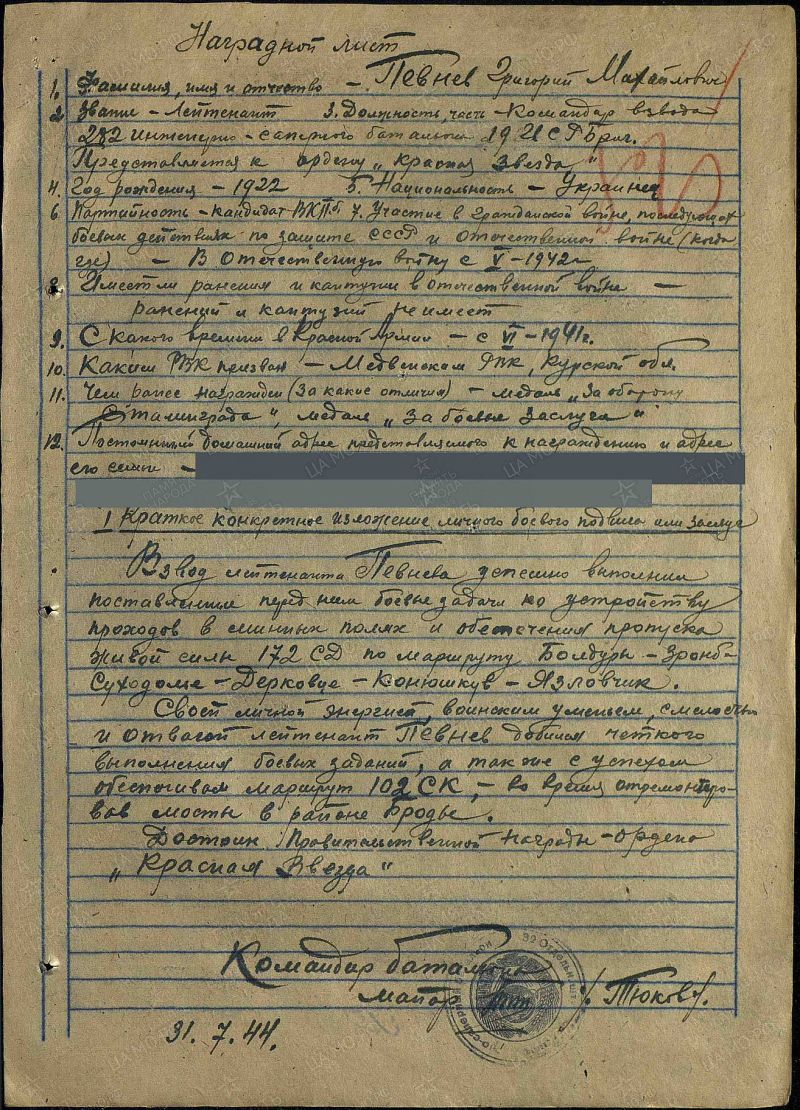 Наградной лист
1. Фамилия, имя и отчество – Певнев Григорий Михайлович
2. Звание – Лейтенант 3. Должность, часть – Командир взвода
282 инженерно-саперного батальона 19 ШИСБриг.
Представляется к ордену „Красная Звезда"
4. Год рождения – 1922 5. Национальность – Украинец
6. Партийность – кандидат ВКПб 7. Участие в гражданской войне, последующих
боевых действиях по защите СССР и отечественной войне (когда
где) – В Отечественную войну с V – 1942г
8. Имеет ли ранения и контузии в отечественной войне –
ранений и контузий не имеет
9. С какого времени в Красной Армии – с VI – 1941г.
10. Каким РВК призван – Медвенским РВК, Курской обл.
11. Чем ранее награжден (за какие отличия) – медаль „За оборону
Сталинграда", медаль „За боевые заслуги"
12. Постоянный домашний адрес представляемого к награждению и адрес
его семьи –
I Краткое конкретное изложение личного боевого подвига или заслуг
Взвод лейтенанта Певнева успешно выполнил
поставленные перед ним боевые задачи по устройству
проходов в минных полях и обеспечения пропуска
живой силы 172 СД по маршруту Болдуры –
Суходолы – Дерковце – Конюшкув – Язловчик.
Своей личной энергией, воинским уменьем, смелостью
и отвагой лейтенант Певнев добился четкого
выполнения боевых заданий, а так же с успехом
обеспечивал маршрут 102 СК, – во время отремонтиро-
вав мосты в районе Броды.
Достоин Правительственной награды – ордена
„Красная Звезда"
Командир батальона
майор /Тюков/.
31.7.44.